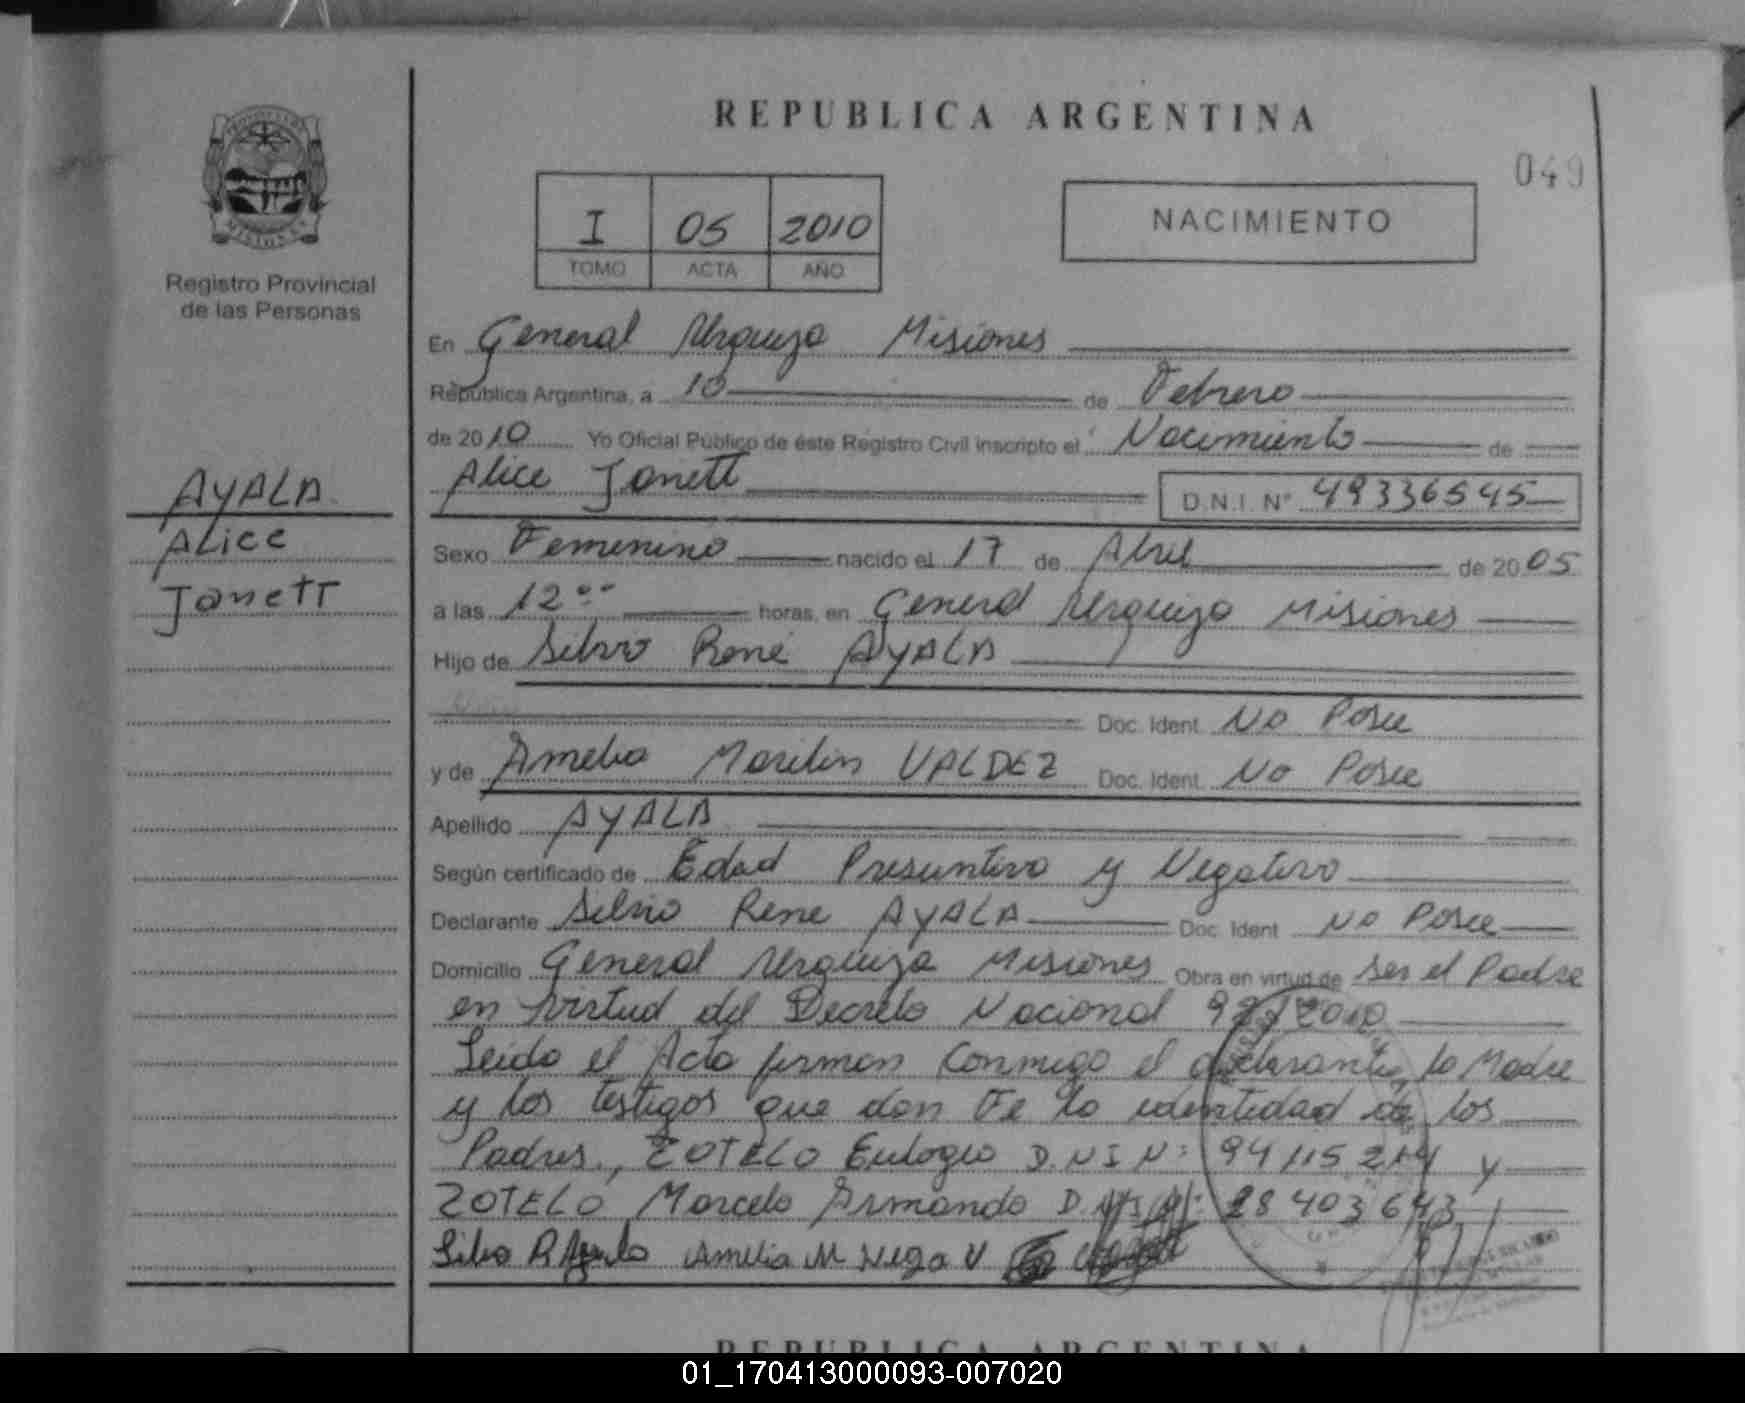 REPUBLICA ARGENTINA
049
PROVINCIA DE
MISIONES
Registro Provincial
de las Personas
I 05 2010
TOMO ACTA AÑO
NACIMIENTO
En General Urquiza Misiones
República Argentina, a 10 de Febrero
de 2010 Yo Oficial Público de éste Registro Civil inscripto el Nacimiento de
Alice Janett D.N.I. Nº 49336545
AYALA
Alice
Janett
Sexo Femenino nacido el 17 de Abril de 2005
a las 12 ºº horas, en General Urquiza Misiones
Hijo de Silvio René AYALA
Doc. Ident. No Posee
y de Amelia Marilin VALDEZ Doc. Ident. No Posee
Apellido AYALA
Según certificado de Edad Presuntiva y Negativo
Declarante Silvio Rene AYALA Doc. Ident No Posee
Domicilio General Urquiza Misiones Obra en virtud de ser el Padre
en virtud del Decreto Nacional 92/2010
Leida el Acta firman conmigo el declarante, la Madre
y los testigos que dan Fe la identidad de los
Padres, ZOTELO Eulogio D.N.I N: 94115214 y
ZOTELO Marcelo Armando D.N.I.N: 28403643
Amelia M
REPUBLICA ARGENTINA
01_170413000093-007020